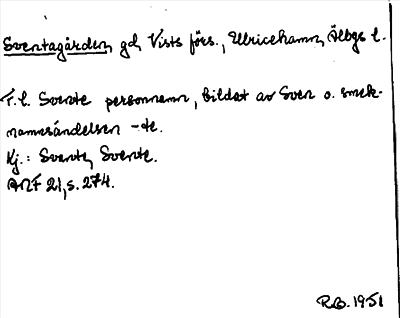 Sventagården, gd, Vists förs., Ulricehamn, Älbgs l.
F. l. Svente personnamn, bildat av Sven o. smek-
namnsändelsen -te.
Kj.: Svente, Svente.
ANF 21, s. 274.
R.B. 1951